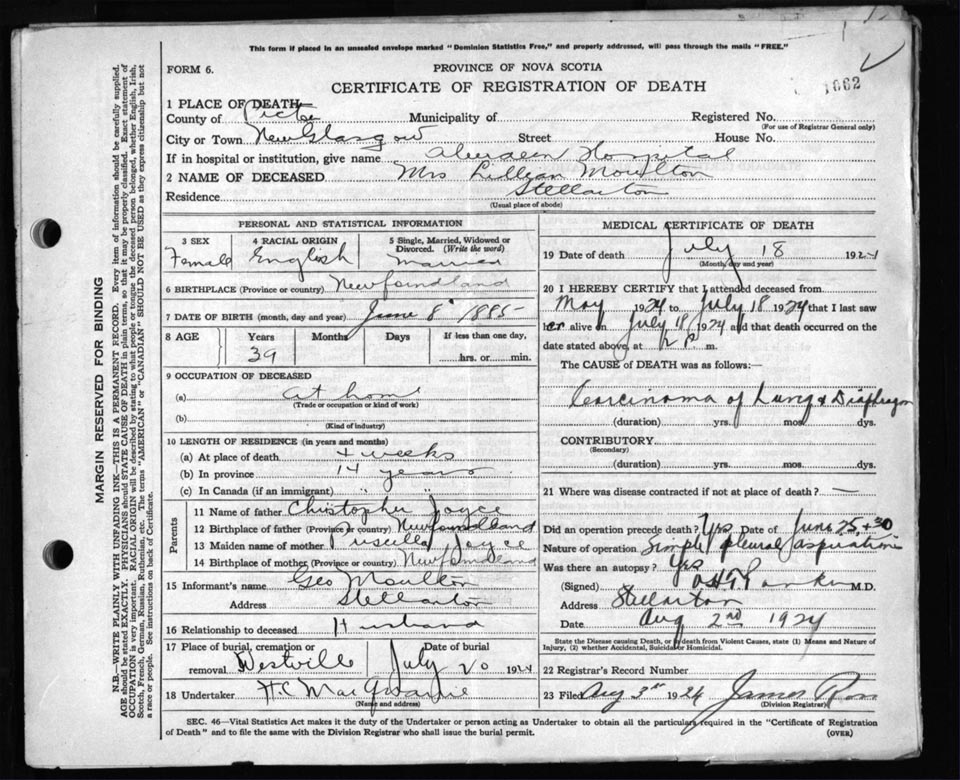 This form if placed in an unsealed envelope marked "Dominion Statistics Free," and properly addressed, will pass through the mails "FREE."
FORM 6.
PROVINCE OF NOVA SCOTIA
CERTIFICATE OF REGISTRATION OF DEATH
1662
1 PLACE OF DEATH—
County of Pictou Municipality of Registered No.
(For use of Registrar General only)
City or Town New Glasgow Street House No.
If in hospital or institution, give name Aberdeen Hospital
2 NAME OF DECEASED Mrs Lillian Moulton
Residence Stellarton
(Usual place of abode)
PERSONAL AND STATISTICAL INFORMATION
3 SEX Female
4 RACIAL ORIGIN English
5 Single, Married, Widowed or Divorced. (Write the word) Married
6 BIRTHPLACE (Province or country) Newfoundland
7 DATE OF BIRTH (month, day and year) June 8 1885
8 AGE Years Months Days If less than one day,
39 hrs. or min.
9 OCCUPATION OF DECEASED
(a) at home
(Trade or occupation or kind of work)
(b)
(Kind of industry)
10 LENGTH OF RESIDENCE (in years and months)
(a) At place of death 4 weeks
(b) In province 14 years
(c) In Canada (if an immigrant) " "
Parents
11 Name of father Christopher Joyce
12 Birthplace of father (Province or country) Newfoundland
13 Maiden name of mother Priscilla Joyce
14 Birthplace of mother (Province or country) Newfoundland
15 Informant's name Geo Moulton
Address Stellarton
16 Relationship to deceased Husband
17 Place of burial, cremation or removal Westville Date of burial July 20 1924
18 Undertaker H.C. MacQuarrie
(Name and address)
MEDICAL CERTIFICATE OF DEATH
19 Date of death July 18 1924
(Month, day and year)
20 I HEREBY CERTIFY that I attended deceased from
May 1924 to July 18 1924 that I last saw
her alive on July 18 1924 and that death occurred on
date stated above, at 2 p m.
The CAUSE of DEATH was as follows:—
Carcinoma of Lung & Diaphragm
(duration) yrs. mos. dys.
CONTRIBUTORY.
(Secondary)
(duration) yrs. mos. dys.
21 Where was disease contracted if not at place of death? —
Did an operation precede death? Yes Date of June 25, + 30
Nature of operation Simple pleural aspiration
Was there an autopsy? Yes
(Signed) M.D.
Address Stellarton
Date Aug 2nd 1924
State the Disease causing Death, or in death from Violent Causes, state (1) Means and Nature of Injury, (2) whether Accidental, Suicidal or Homicidal.
22 Registrar's Record Number
23 Filed Aug 3rd 1924 James Ross
(Division Registrar)
SEC. 46—Vital Statistics Act makes it the duty of the Undertaker or person acting as Undertaker to obtain all the particulars required in the "Certificate of Registration
of Death" and to file the same with the Division Registrar who shall issue the burial permit.
(OVER)
MARGIN RESERVED FOR BINDING
N.B.—WRITE PLAINLY WITH UNFADING INK—THIS IS A PERMANENT RECORD. Every item of information should be carefully supplied.
AGE should be stated EXACTLY. PHYSICIANS should STATE CAUSE OF DEATH in plain terms, so that it may be properly classified. Exact statement of
OCCUPATION is very important. RACIAL ORIGIN will be described by stating to what people or tongue the deceased person belonged, whether English, Irish,
Scotch, French, German, Russian, Ruthenian, etc. The terms "AMERICAN" or "CANADIAN" SHOULD NOT BE USED as they express citizenship but not
a race or people. See instructions on back of Certificate.